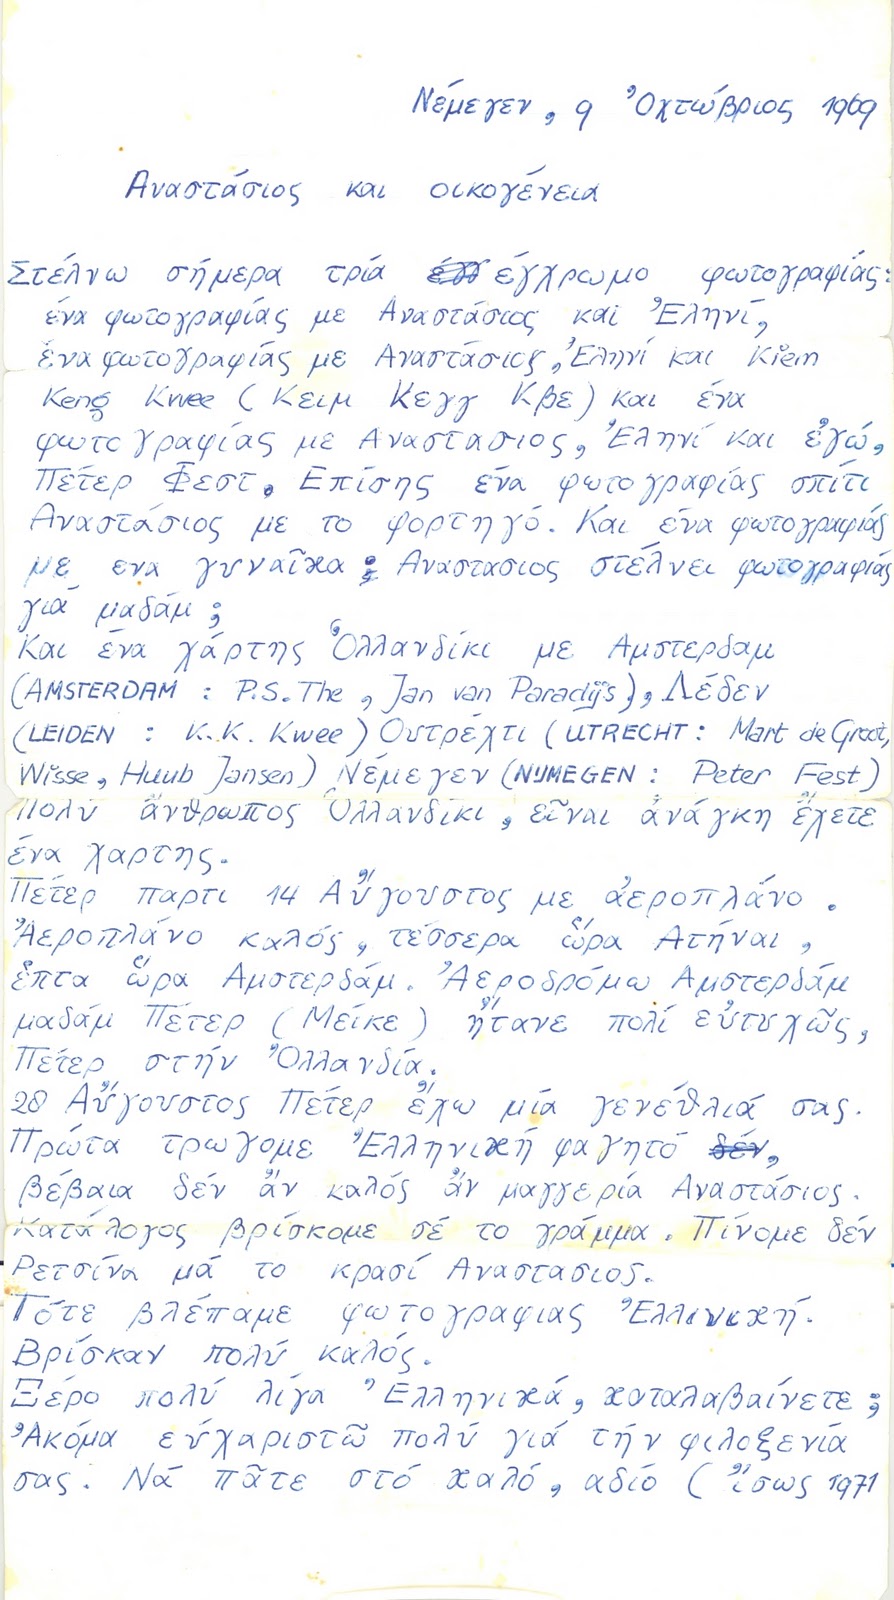 Νέμεγεν, 9 Ὀχτώβριος 1969
Αναστάσιος και οικογένεια
Στέλνω σήμερα τρία έγχρωμο φωτογραφίας:
ένα φωτογραφίας με Αναστάσιος καί Ἐληνί,
ένα φωτογραφίας με Αναστάσιος, Ἐληνί και Kiem
Keng Kwee (Κειμ Κεγγ Κβε) και ένα
φωτογραφίας με Αναστασιος, Ἐληνί και ἐγώ,
Πέτερ Φεστ. Επίσης ένα φωτογραφίας σπίτι
Αναστάσιος με το φορτηγό. Και ένα φωτογραφίας
με ενα γυναῖκα; Αναστασιος στέλνει φωτογραφίας
γιά μαδάμ;
Και ένα χάρτης Ὁλλανδίκι με Αμστερδαμ
(AMSTERDAM : P.S. The, Jan van Paradijs), Λέδεν
(LEIDEN : K.K. Kwee) Ουτρέχτι (UTRECHT: Mart de Groot,
Wisse, Huub Jansen) Νέμεγεν (NIJMEGEN : Peter Fest)
Πολύ ἄνθρωπος Ὁλλανδίκι, εἶναι ἀνάγκη ἔχετε
ένα χαρτης.
Πέτερ παρτι 14 Αὔγουστος με ἀεροπλάνο.
Ἀεροπλάνο καλός, τέσσερα ὥρα Ατήναι,
ἑπτα ὥρα Αμστερδάμ. Ἀεροδρόμω Αμστερδάμ
μαδάμ Πέτερ (Μείκε) ἤτανε πολί εὐτυχῶς,
Πέτερ στήν Ὁλλανδία.
28 Αὔγουστος Πέτερ ἔχω μία γενέθλιά σας.
Πρώτα τρωγομε Ἑλληνική φαγητό δέν,
βέβαια δέν ἄν καλός ἄν μαγγερία Αναστάσιος.
Κατάλογος βρίσκομε σέ το γράμμα. Πίνομε δέν
Ρετσίνα μά το κρασί Αναστασιος.
Τότε βλέπαμε φωτογραφιας Ἑλλινική.
Βρίσκαν πολύ καλός.
Ξέρο πολύ λίγα Ἑλληνικά, καταλαβαίνετε;
Ἀκόμα εύχαριστῶ πολύ γιά τήν φιλοξενία
σας. Νά πᾶτε στό καλό, αδίο (ἴσως 1971